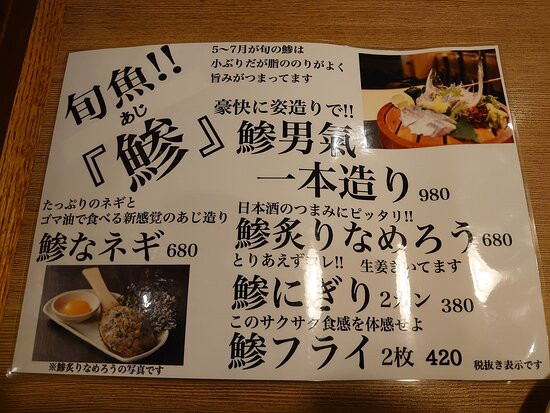 旬魚!!
あじ
『鯵』
5〜7月が旬の鯵は
小ぶりだが脂ののりがよく
旨みがつまってます
豪快に姿造りで!!
鯵男氣
一本造り 980
たっぷりのネギと
ゴマ油で食べる新感覚のあじ造り
鯵なネギ 680
日本酒のつまみにピッタリ!!
鯵炙りなめろう 680
とりあえずコレ!! 生姜きいてます
鯵にぎり 2カン 380
このサクサク食感を体感せよ
鯵フライ 2枚 420
※鯵炙りなめろうの写真です
税抜き表示です